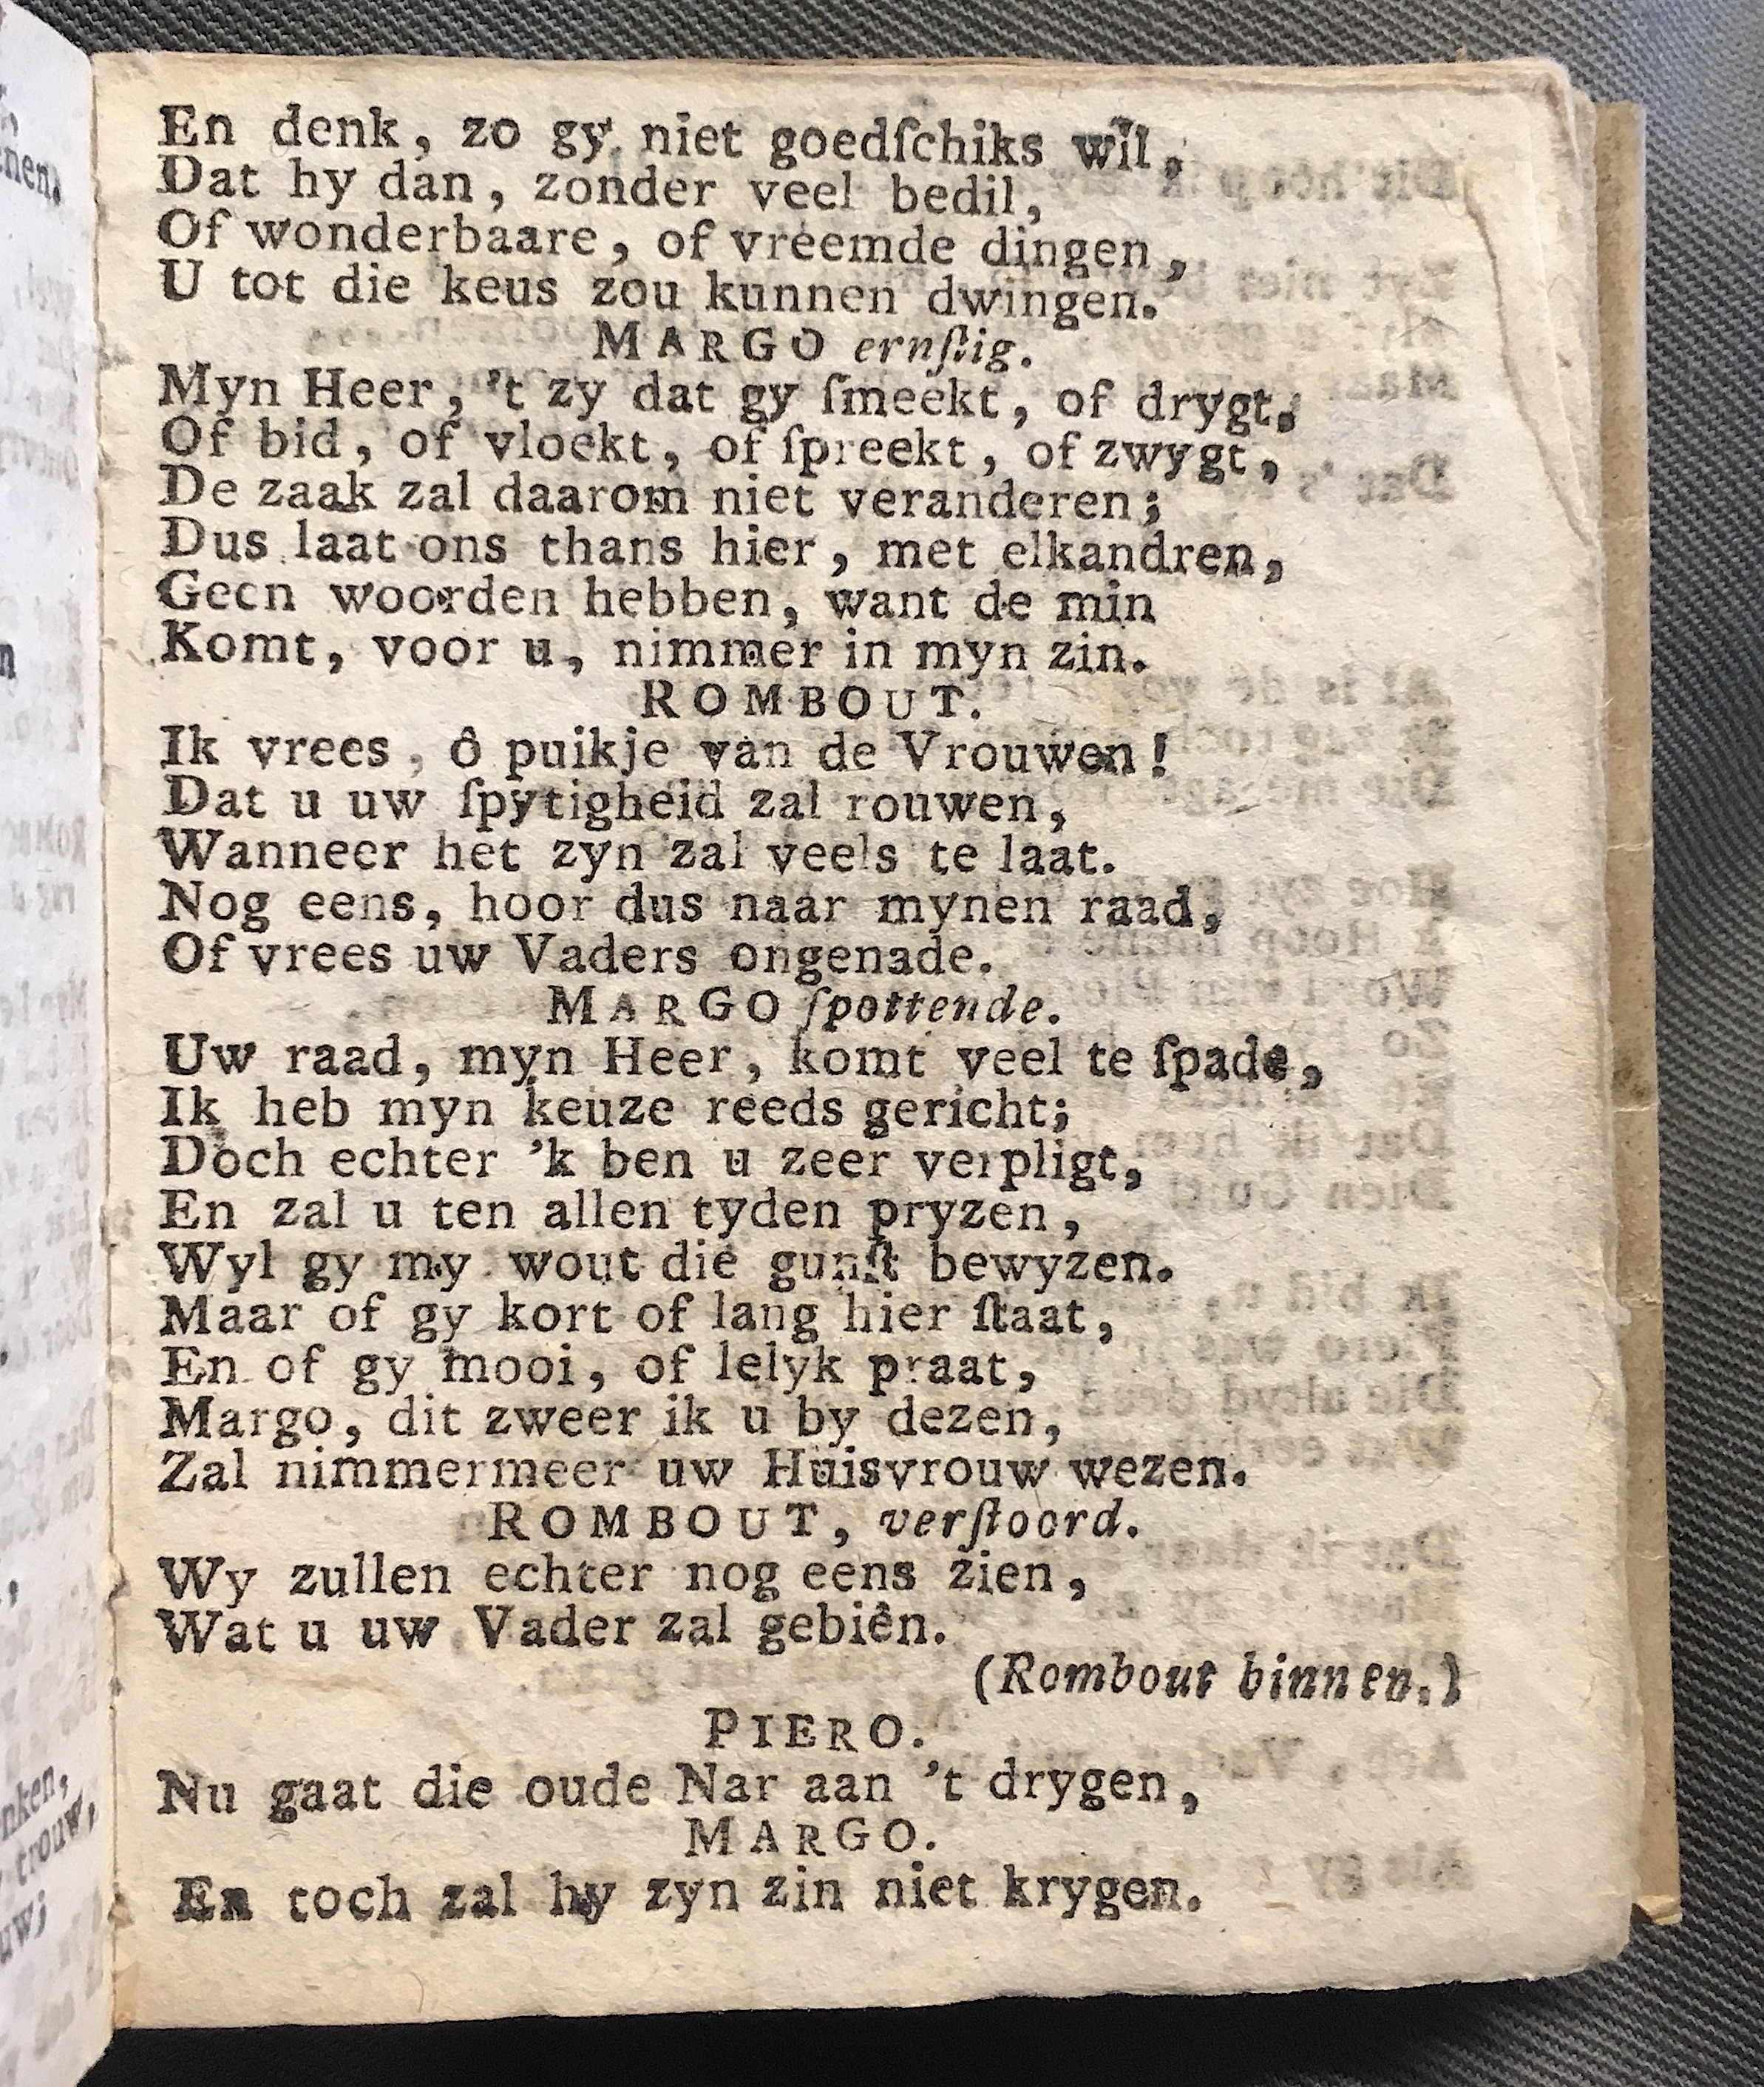 En denk, zo gy niet goedſchiks wil,
Dat hy dan, zonder veel bedil,
Of wonderbaare, of vreemde dingen,
U tot die keus zou kunnen dwingen.
MARGO ernſtig.
Myn Heer, 't zy dat gy ſmeekt, of drygt,
Of bid, of vloekt, of ſpreekt, of zwygt,
De zaak zal daarom niet veranderen;
Dus laat ons thans hier, met elkandren,
Geen woorden hebben, want de min
Komt, voor u, nimmer in myn zin.
ROMBOUT.
Ik vrees, ô puikje van de Vrouwen!
Dat u uw ſpytigheid zal rouwen,
Wanneer het zyn zal veels te laat.
Nog eens, hoor dus naar mynen raad,
Of vrees uw Vaders ongenade.
MARGO ſpottende.
Uw raad, myn Heer, komt veel te ſpade,
Ik heb myn keuze reeds gericht;
Doch echter 'k ben u zeer verpligt,
En zal u ten allen tyden pryzen,
Wyl gy my wout die gunſt bewyzen.
Maar of gy kort of lang hier ſtaat,
En of gy mooi, of lelyk praat,
Margo, dit zweer ik u by dezen,
Zal nimmermeer uw Huisvrouw wezen.
ROMBOUT, verſtoord.
Wy zullen echter nog eens zien,
Wat u uw Vader zal gebiên.
(Rombout binnen.)
PIERO.
Nu gaat die oude Nar aan 't drygen,
MARGO.
En toch zal hy zyn zin niet krygen.